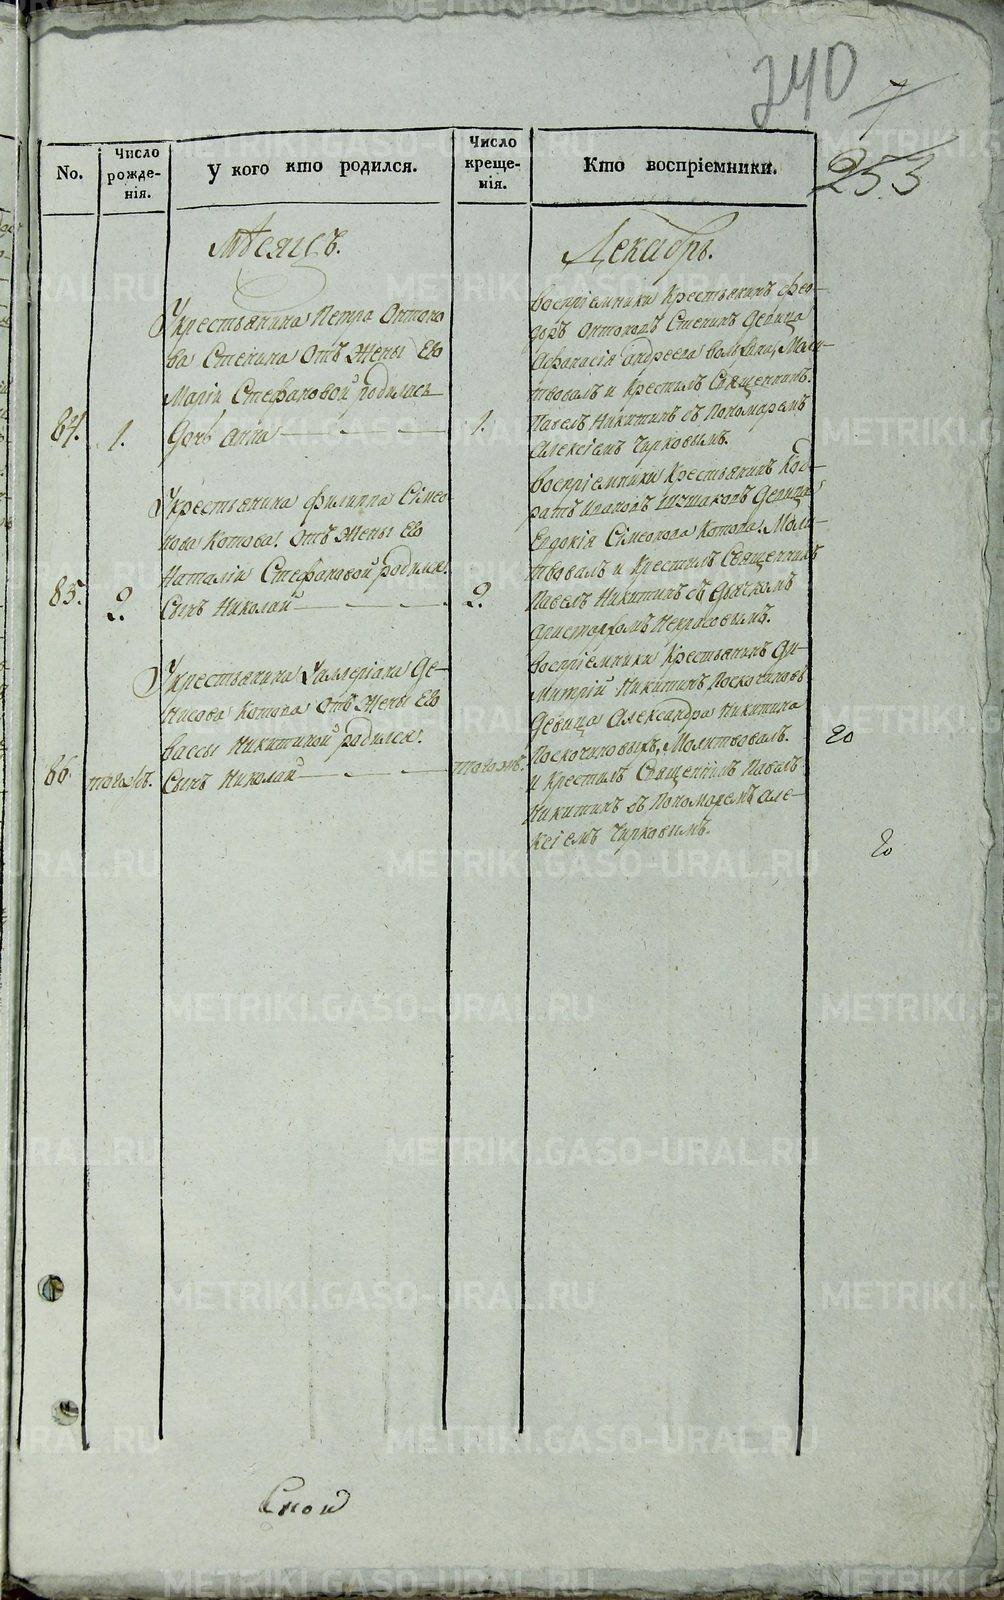 240
253
No.
Число рожде-нія.
У кого кто родился.
Число креще-нія.
Кто воспріемники.
Мѣсяцъ.
Декабрь.
84.
1.
У крестьянина Петра Антоно
ва Степина Отъ Жены Его
Маріи Стефановой родилась
Дочь Анна
1.
воспріемники Крестьянинъ Фео-
доръ Антоновъ Степинъ Девица
Афанасія Андреева
Моли-
твовалъ и Крестилъ Священникъ
Павелъ Никитинъ съ Пономаремъ
Алексіемъ Чирковымъ.
85.
2.
У крестьянина Филиппа Сімео
нова Котова. Отъ Жены Его
Наталіи Стефановой родился
Сынъ Николай
2.
воспріемники Крестьянинъ Код-
ратъ Ивановъ Девица
Евдокія Сімеонова Котова. Моли-
твовалъ и Крестилъ Священникъ
Павелъ Никитинъ съ Дьячкомъ
Аристархомъ Некрасовымъ.
86.
тогожъ.
У крестьянина Уалеріана Де-
нисова Котова Отъ Жены Его
Вассы Никитиной родился.
Сынъ Николай
тогожъ.
воспріемники Крестьянинъ Ди-
митрій Никитинъ Поскочиновъ
Девица Александра Никитина
Поскочиновыхъ, Молитвовалъ.
и Крестилъ Священникъ Павелъ
Никитинъ съ Пономаремъ Але-
ксіемъ Чирковымъ.
METRIKI.GASO-URAL.RU